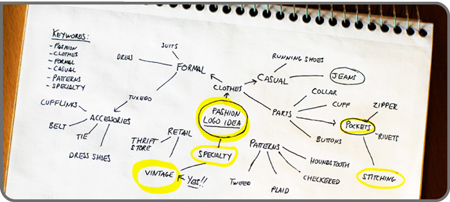 KEYWORDS:
- FASHION
- CLOTHES
- FORMAL
- CASUAL
- PATTERNS
- SPECIALTY
SUITS
DRESS
FORMAL
TUXEDO
ACCESSORIES
CUFFLINKS
BELT
TIE
DRESS SHOES
CLOTHES
CASUAL
RUNNING SHOES
JEANS
PARTS
COLLAR
CUFF
POCKETS
ZIPPER
RIVETS
STITCHING
BUTTONS
FASHION
LOGO IDEA
SPECIALTY
RETAIL
THRIFT
STORE
VINTAGE
YES!!
PATTERNS
HOUNDSTOOTH
CHECKERED
PLAID
TWEED